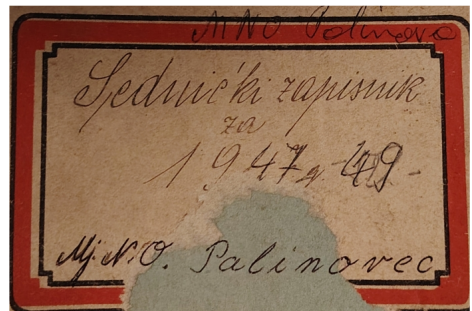 MNO Palinovec
Sjednički zapisnik
za
1947 g. 49
Mj. N. O. Palinovec